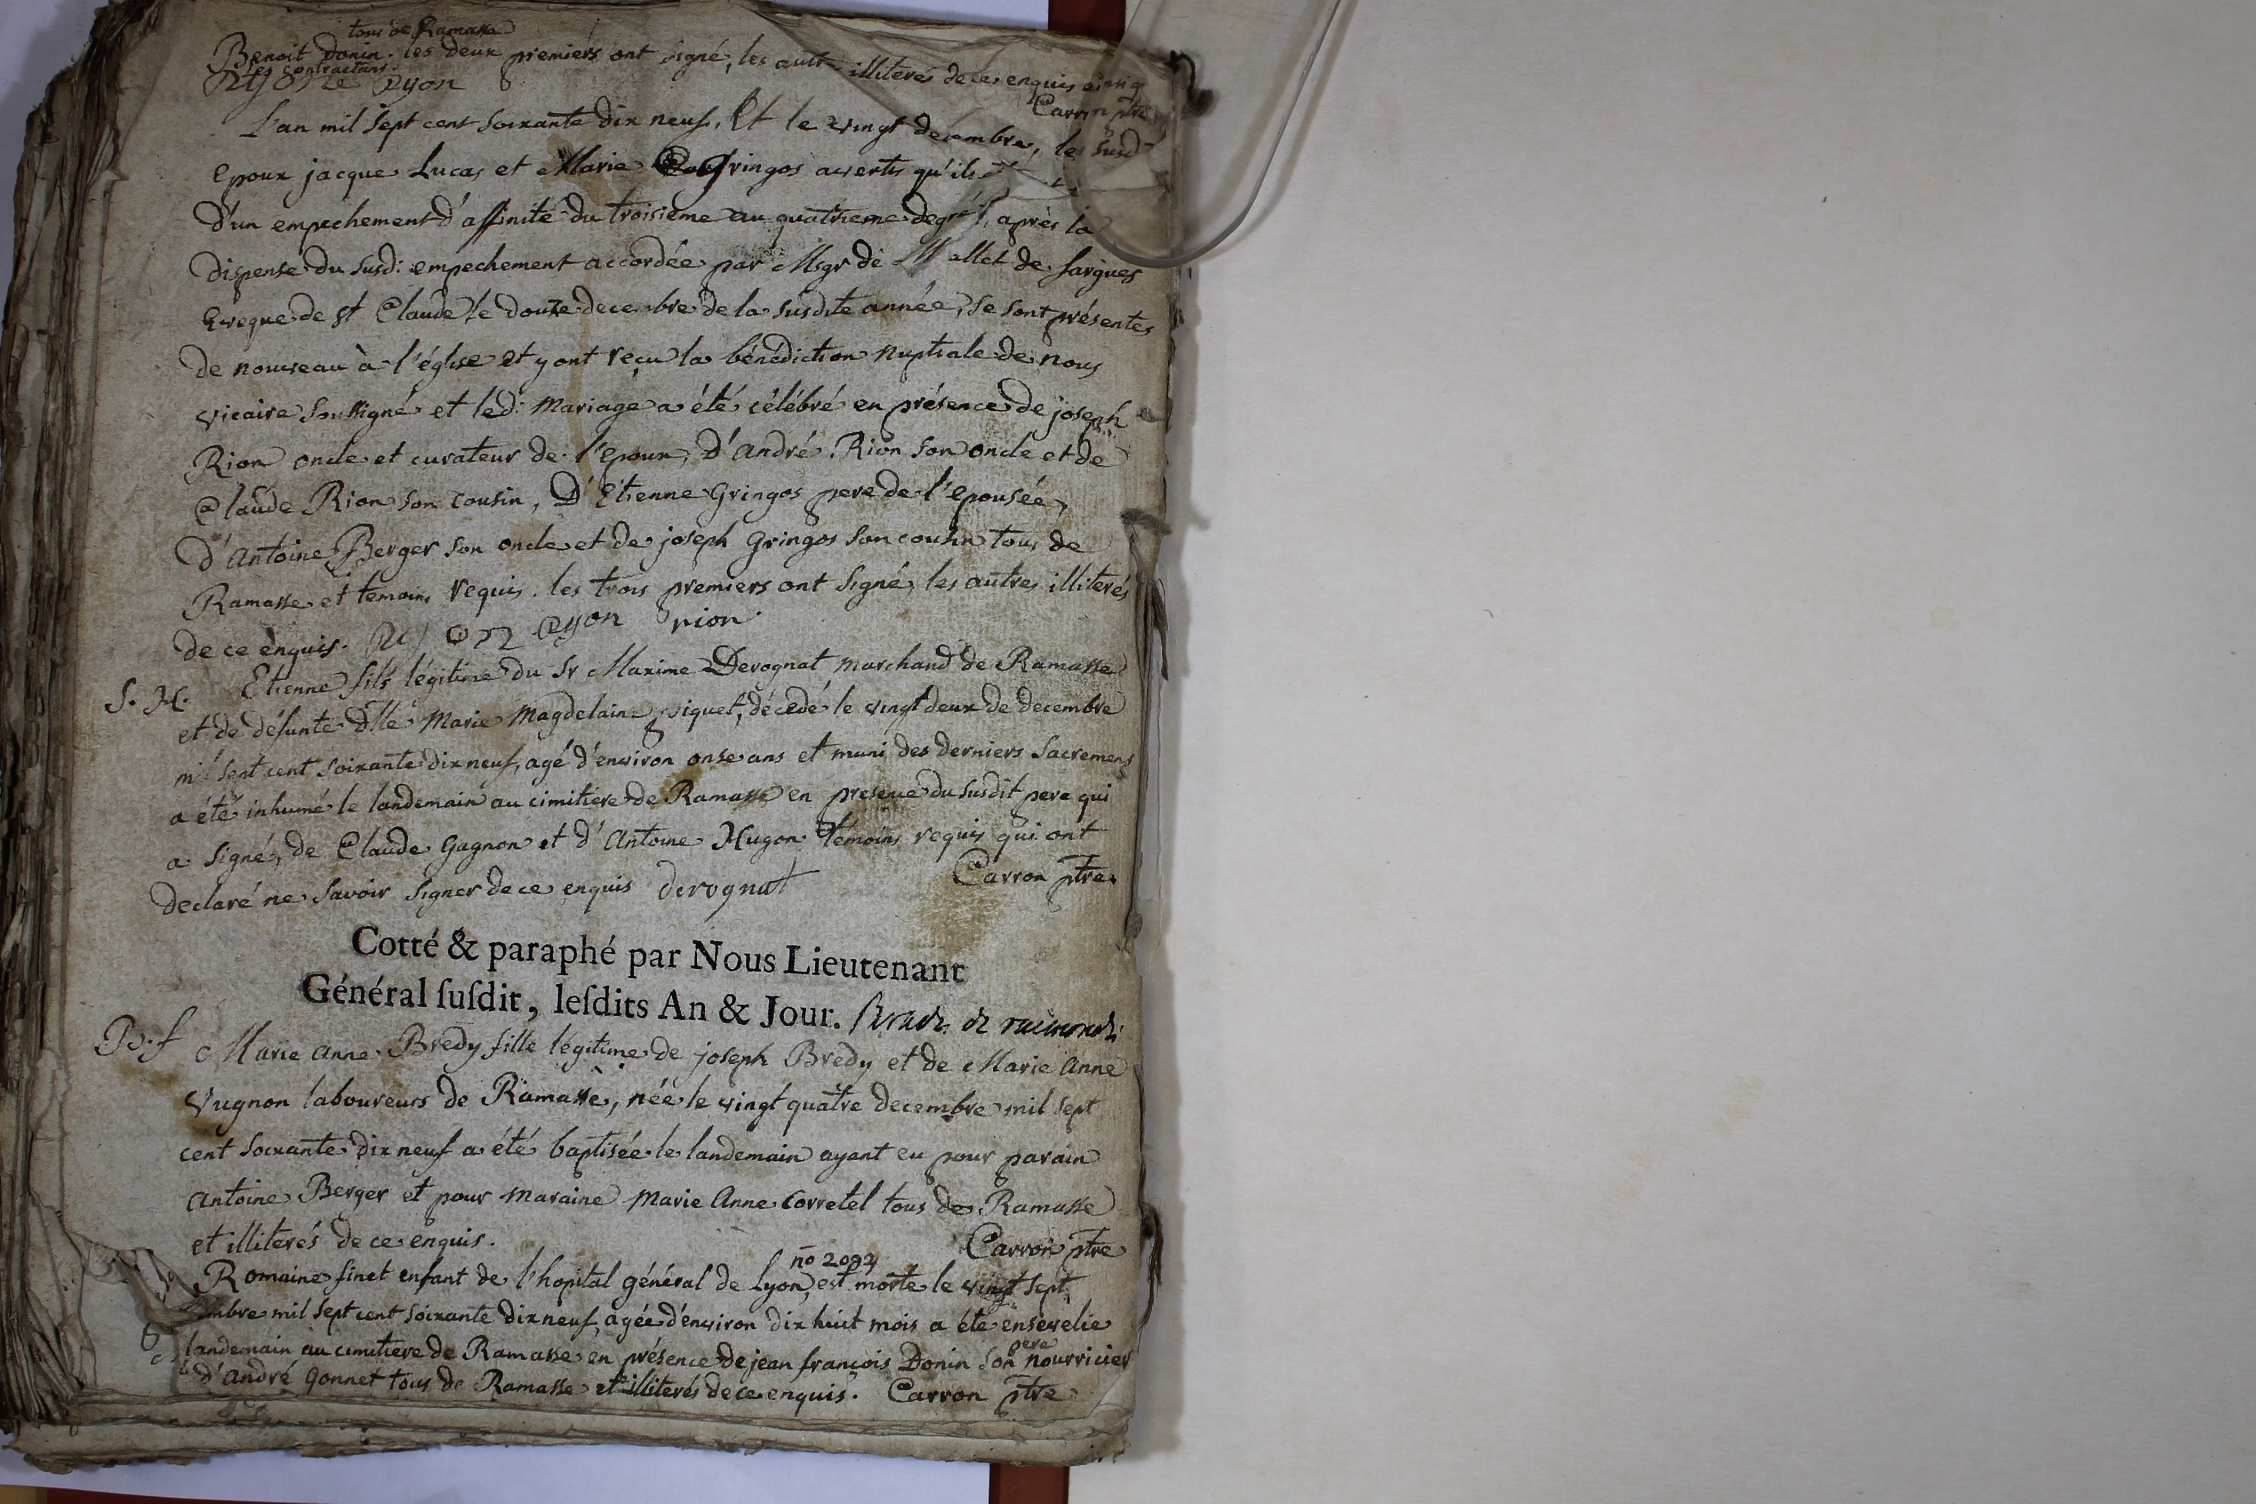 tous de Ramasse
Benoit Donin. les deux premiers ont signé, les autres illiterés de ce enquis ainsi q
les contractans.
Rion
Carron ptre
L'an mil sept cent soixante dix neuf, Et le vingt decembre, les susd
epoux jacque Lucas et Marie Gringos avertis qu'ils
d'un empechement d'affinité du troisieme au quatrieme degré, après la
dispense du susd: empechement accordée par Msgr de Mallet de fargues
Eveque de st Claude le douze decembre de la susdite année, se sont présentés
de nouveau à l'église et y ont reçu la bénédiction nuptiale de nous
vicaire soussigné et led: mariage a été célébré en présence de joseph
Rion oncle et curateur de l'epoux, D'andré Rion son oncle et de
Claude Rion son cousin, D'Etienne Gringos pere de l'epousée,
d'antoine Berger son oncle et de joseph Gringos son cousin tous de
Ramasse et temoins requis. les trois premiers ont signé, les autres illiterés
de ce enquis. rion
S. H. Etienne fils légitime du Sr Maxime Derognat marchand de Ramasse
et de défunte dlle Marie Magdelaine piquet, décedé le vingt deux de decembre
mil sept cent soixante dix neuf, agé d'environ onse ans et muni des derniers sacremens
a été inhumé le landemain au cimitiere de Ramasse en presence du susdit pere qui
a signé, de Claude Gagnon et d'Antoine Hugon témoins requis qui ont
declaré ne savoir signer de ce enquis derognat
Carron ptre
Cotté & paraphé par Nous Lieutenant
Général ſuſdit, leſdits An & Jour.
B. f Marie Anne Bredy fille légitime de joseph Bredy et de Marie Anne
Vugnon laboureurs de Ramasse, née le vingt quatre decembre mil sept
cent soixante dix neuf a été baptisée le landemain ayant eu pour parain
antoine Berger et pour maraine Marie Anne Corretel tous de Ramasse
et illiterés de ce enquis. Carron ptre
no
Romaine finet enfant de l'hopital général de Lyon, est morte le vingt sept
mbre mil sept cent soixante dix neuf, agée d'environ dix huit mois a été ensevelie
landemain au cimitiere de Ramasse en présence de jean françois Donin son pere nourricier
d'andré Gonnet tous de Ramasse et illiterés de ce enquis. Carron ptre